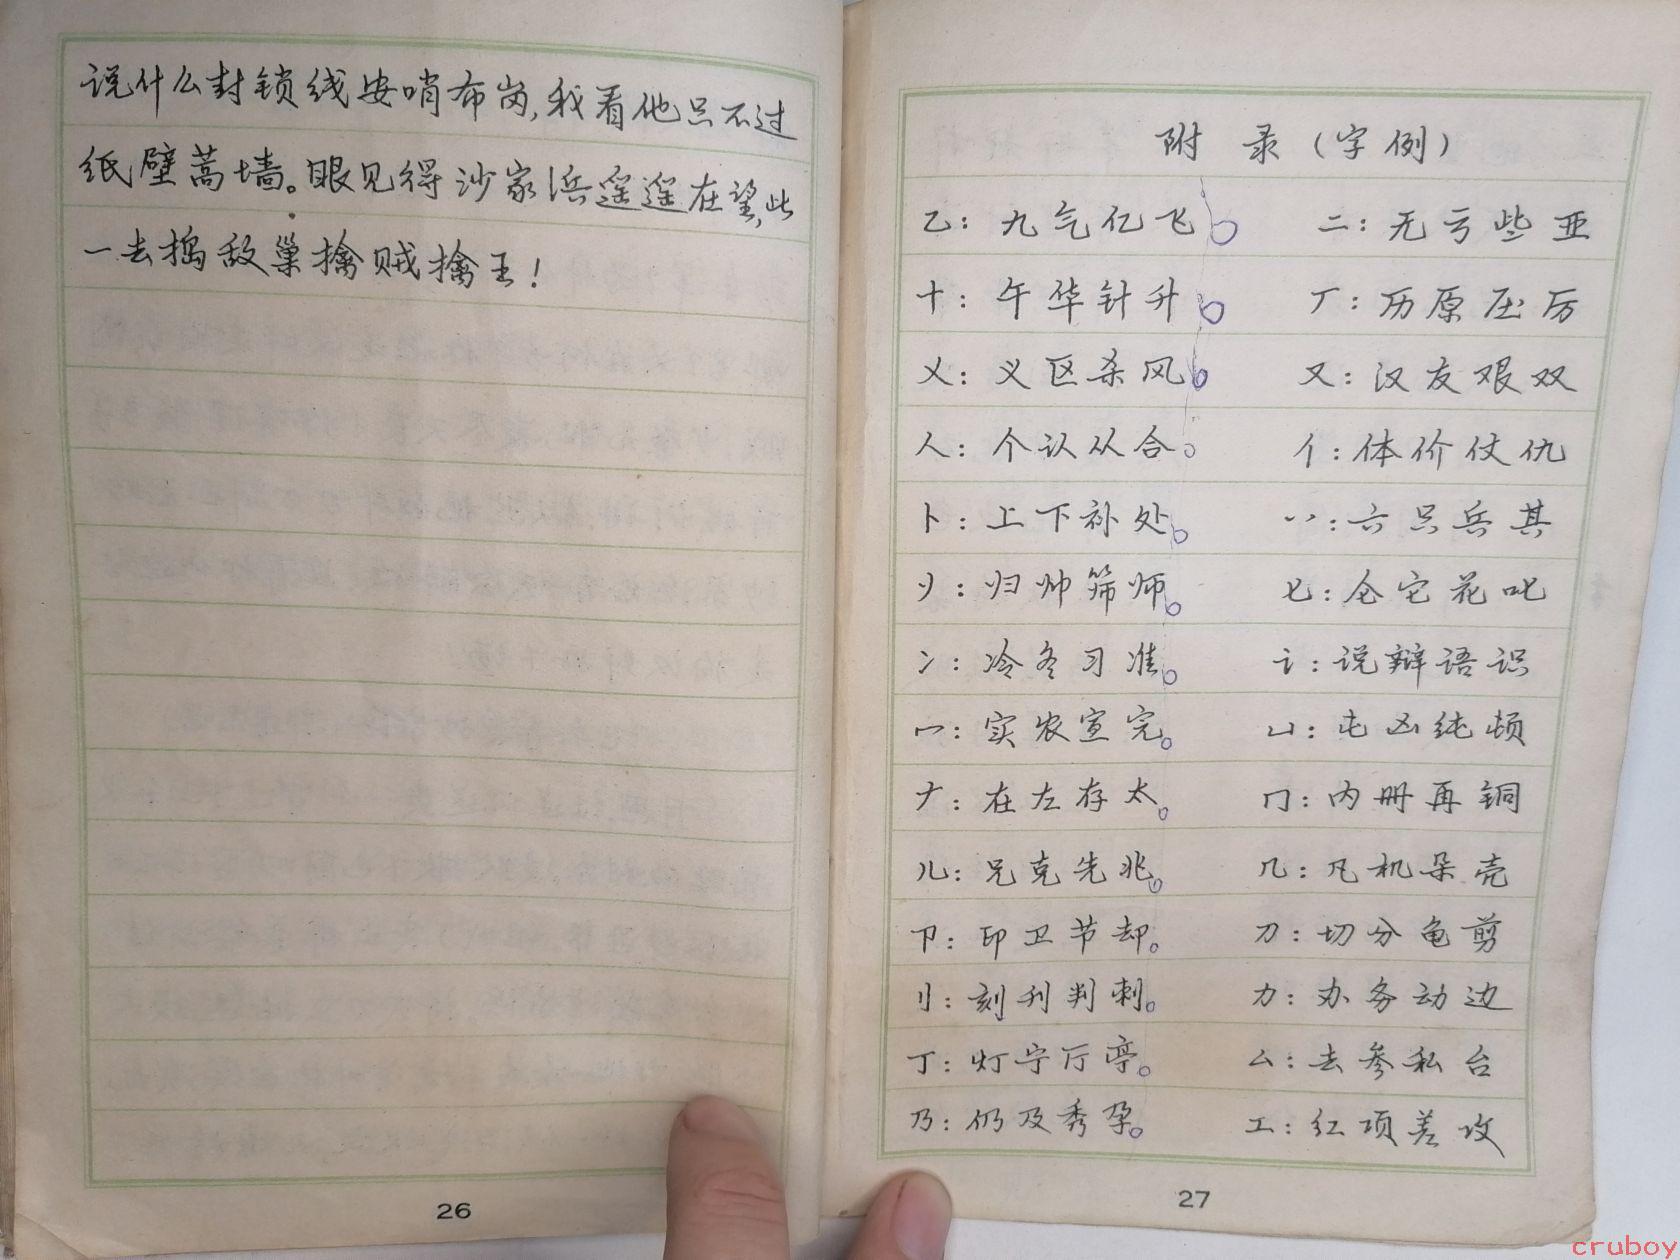 说什么封锁线安哨布岗,我看他只不过
纸壁蒿墙。眼见得沙家浜遥遥在望,此
一去捣敌巢擒贼擒王!
26
附 录(字例)
乙: 九气亿飞 二: 无亏些亚
十: 午华针升 厂: 历原压厉
乂: 义区杀风 又: 汉友艰双
人: 个认从合 亻: 体价仗仇
卜: 上下补处 八: 六只兵其
刂: 归帅筛师 匕: 仑它花叱
冫: 冷冬习准 讠: 说辩语识
冖: 实农宣完 凵: 屯凶纯顿
𠂇: 在左存太 冂: 内册再铜
儿: 兄克先兆 几: 凡机朵壳
卩: 印卫节却 刀: 切分龟剪
刂: 刻刊判刺 力: 办务动边
丁: 灯宁厅亭 厶: 去参私台
乃: 仍及秀孕 工: 红项差攻
27
cruboy